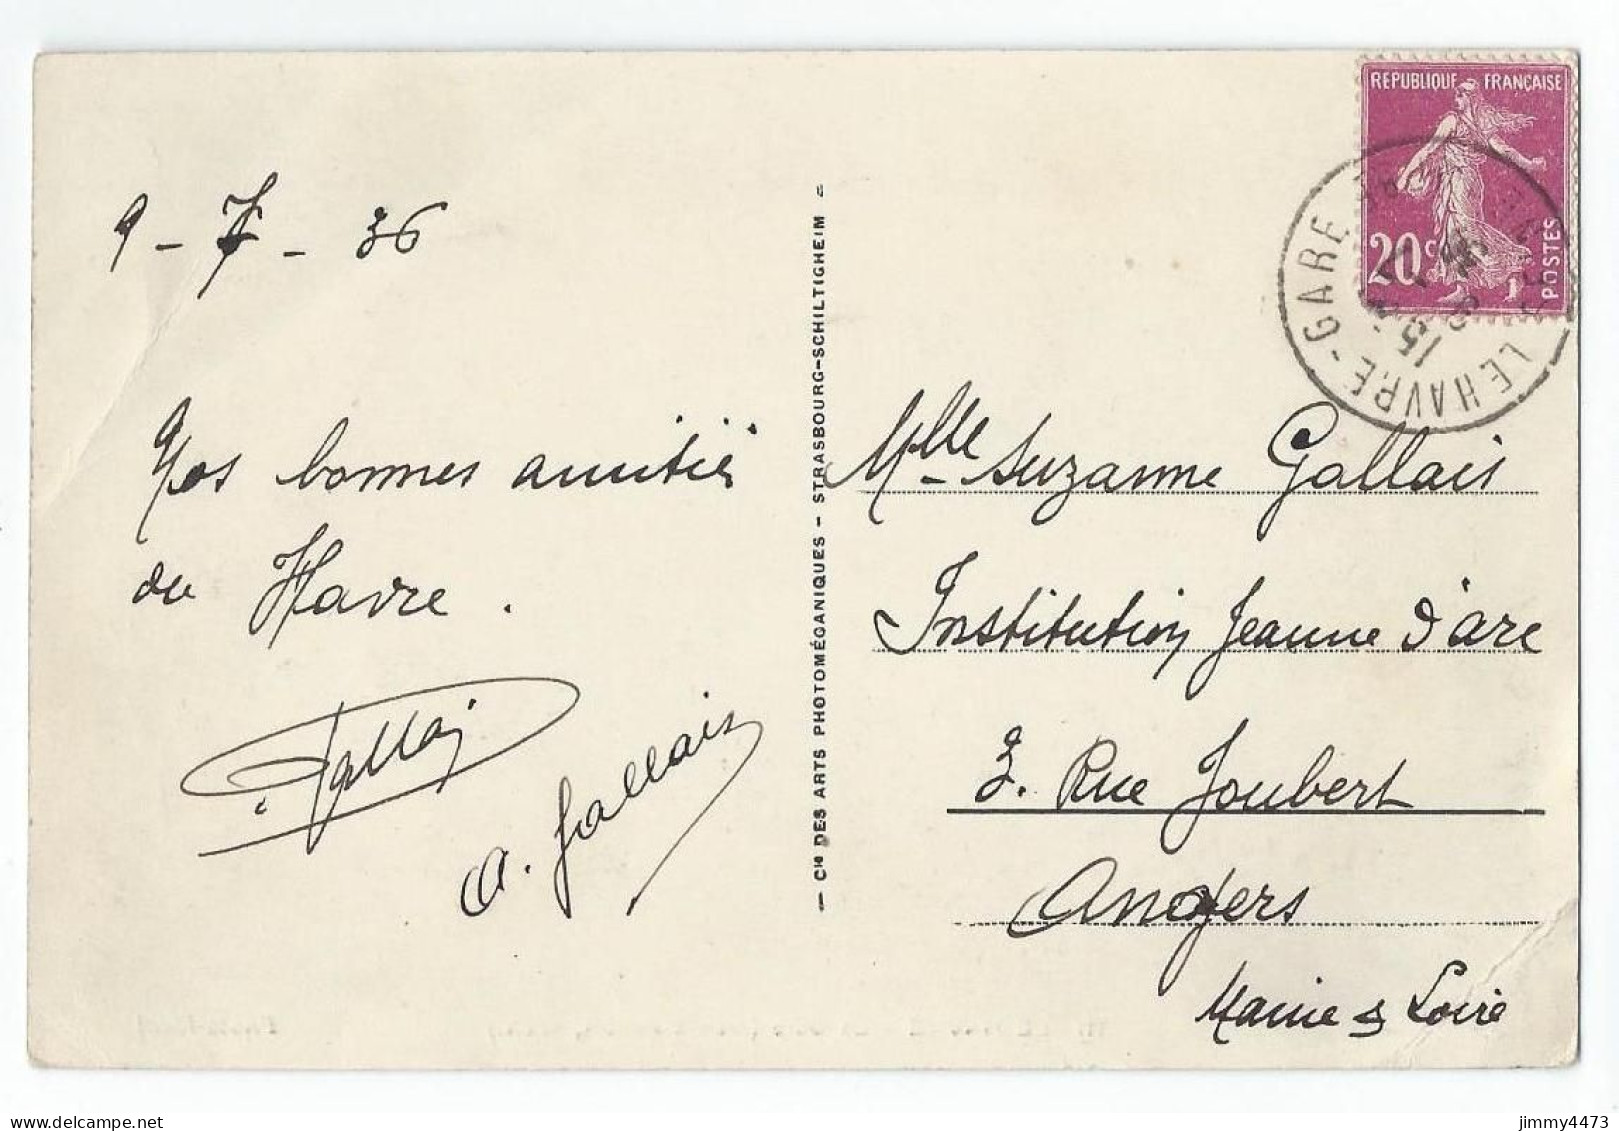 9 - 7 - 36
Nos bonnes amitiés
du Havre.
Gallais
A. Gallais
— Cie DES ARTS PHOTOMÉCANIQUES - STRASBOURG-SCHILTIGHEIM —
RÉPUBLIQUE FRANÇAISE
20c
POSTES
LE HAVRE - GARE
15
Mlle Suzanne Gallais
Institution Jeanne d'arc
3. Rue Joubert
Angers
Maine & Loire
jimmy4473